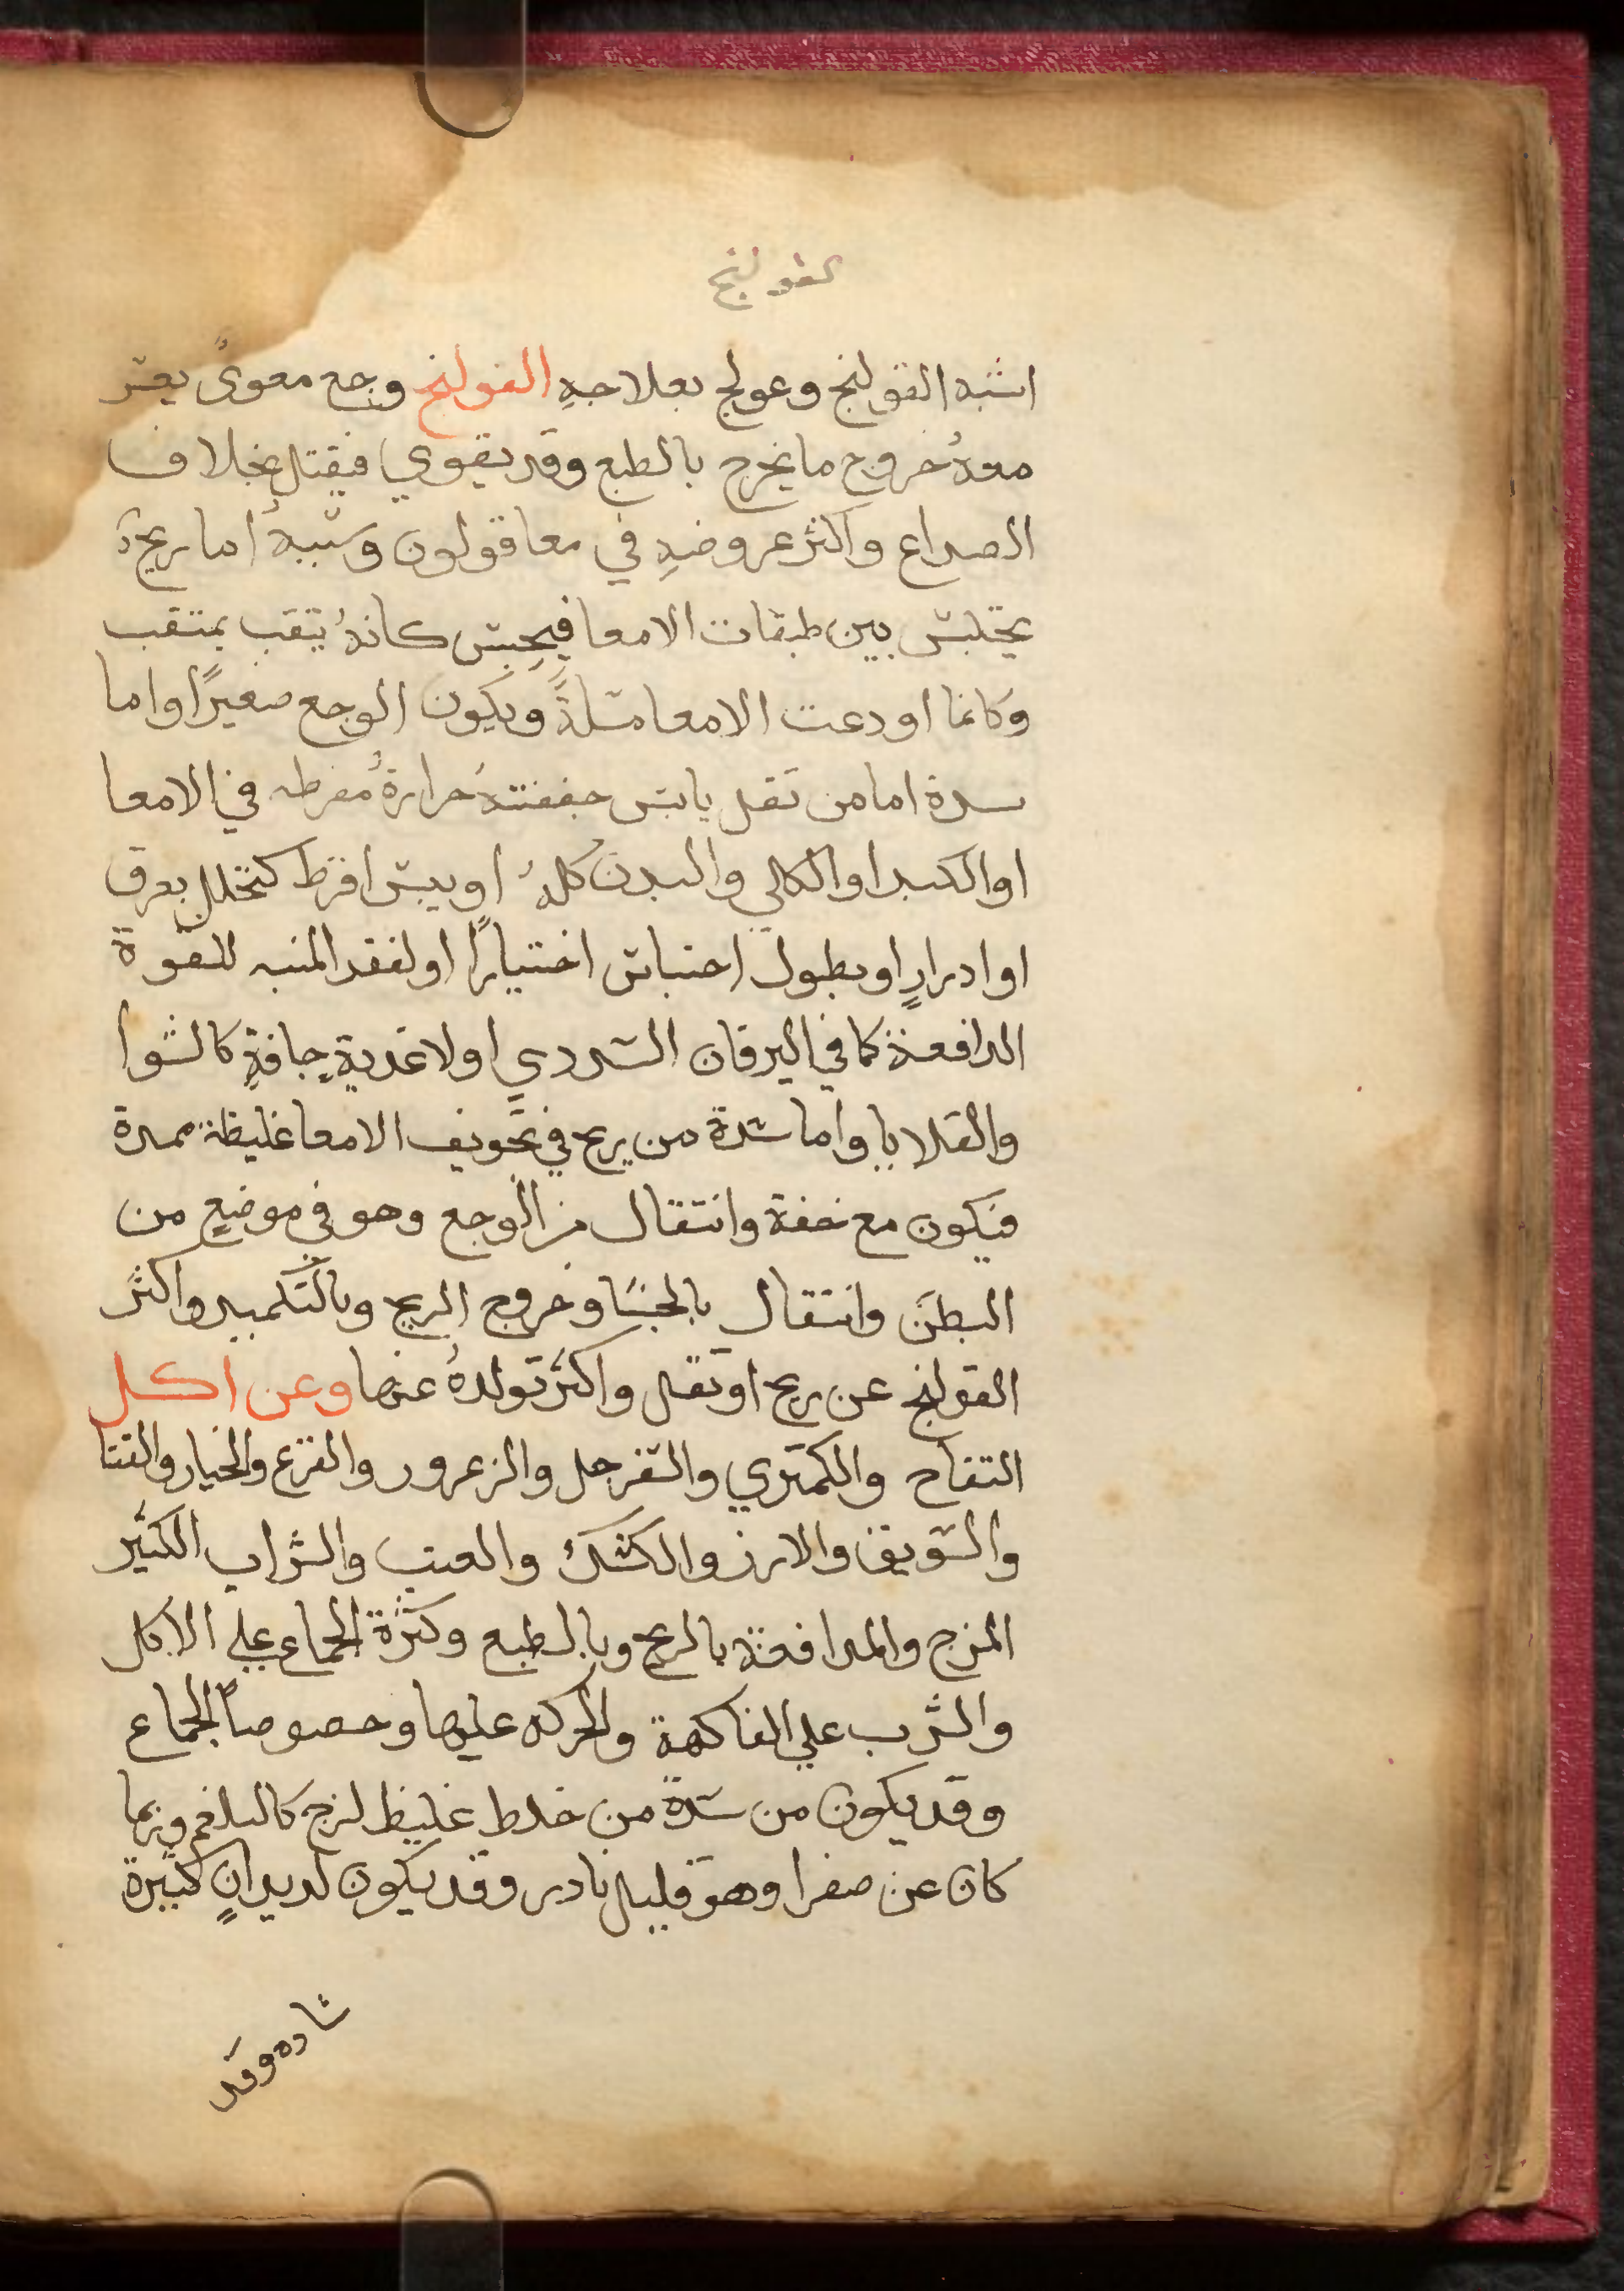 القولنج
اشبه القولنج وعولج بعلاجهِ القولنج وجع معوىٌ يعسر
معهُ خروج ما يخرج بالطبع وقد يقوي فيقتل بخلاف
الصداع واكثر عروضهِ في معا قولون وسببهُ اما ريح
يحتبس بين طبقات الامعا فيحبس كانهُ يثقب بمثقب
وكانما اودعت الامعا مسلةً ويكون الوجع صغيرًا واما
سدة اما من ثقل يابس جففتهُ حرارةٌ مفرطه في الامعا
او الكبد او الكلي والبدن كلهُ او يبس افرط كتخلل بعرق
او ادرارٍ او بطول احتباس اختيارًا او لفقد المنبه للقوة
الدافعة كما في اليرقان السددي اولاغدية جافةٍ كالشوا
والقلايا واما سدة من ريح في تجويف الامعا غليظة ممددة
فيكون مع خفة وانتقال من الوجع وهو في موضعٍ من
البطن وانتقال بالجشا وخروج الريح وبالتكميد واكثر
القولنج عن ريح او ثقل واكثر تولدهُ عنها وعن اكل
التفاح والكمثري والسفرجل والزعرور والقرع والخيار والقثا
والسويق والارز والكشك والعنب والشراب الكثير
المزج والمدافعة بالريح وبالطبع وكثرة الجماع علي الاكل
والشرب علي الفاكهة والحركه عليها وخصوصاً الجماع
وقد يكون من سدة من خلط غليظ لزج كالبلغم وربما
كان عن صفرا وهو قليل نادر وقد يكون لديدانٍ كثيرة
ساده وقد